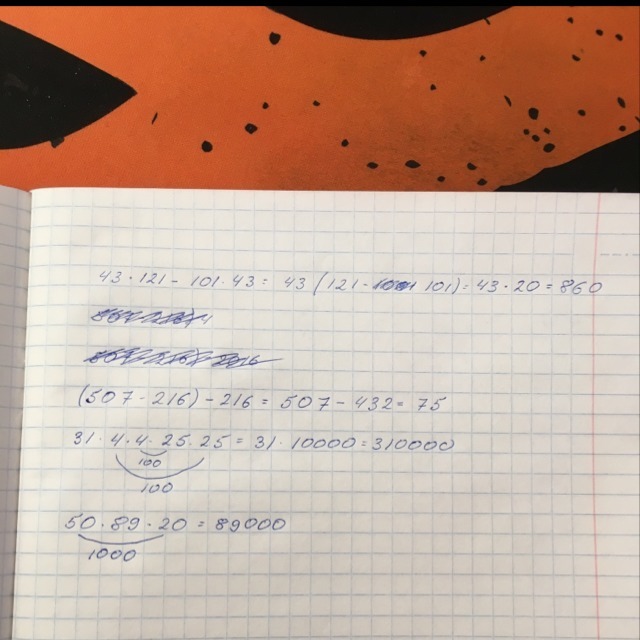 43 · 121 - 101 · 43 = 43 (121 - 101) = 43 · 20 = 860
(507 - 216) - 216 = 507 - 432 = 75
31 · 4 · 4 · 25 · 25 = 31 · 10000 = 310000
100
100
50 · 89 · 20 = 89000
1000